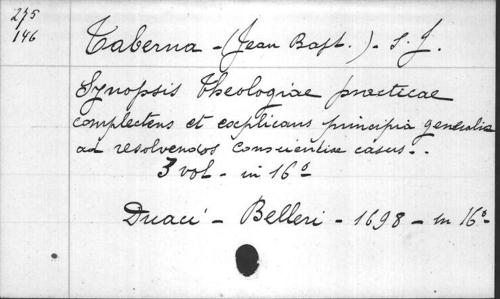 275
146
Taberna - (Jean Bapt.) - S. J.
Synopsis Theologiae practicae
complectens et explicans principia generalia
ad resolvendos Conscientiae casus..
3 vol - in 16°
Duaci - Belleri - 1698 - in 16°